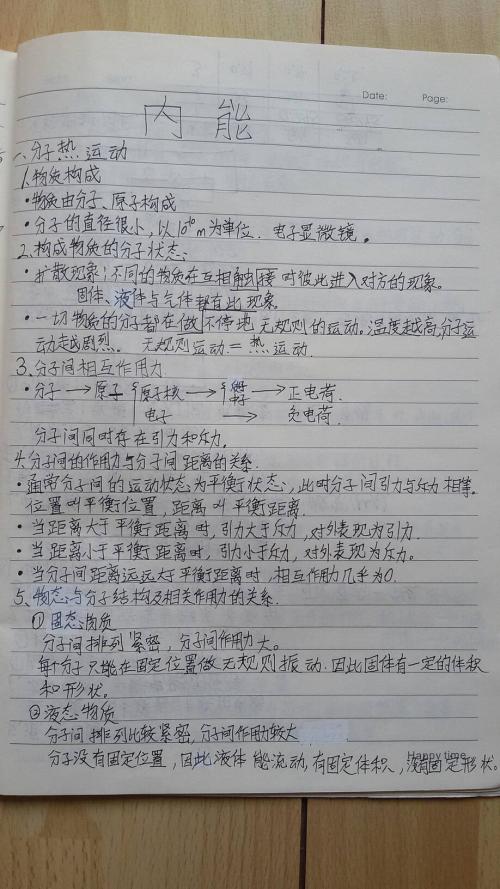 Date: Page:
内能
一、分子热运动
1.物质构成
·物质由分子、原子构成
·分子的直径很小,以10⁻¹⁰m为单位.电子显微镜。
2.构成物质的分子状态:
·扩散现象:不同的物质在互相触接时彼此进入对方的现象。
固体、液体与气体都有此现象。
·一切物质的分子都在做不停地无规则的运动。温度越高,分子运
动越剧烈。 无规则运动=热运动.
3.分子间相互作用力
·分子→原子{原子核→ 中子→正电荷.
电子 → 负电荷.
分子间同时存在引力和斥力。
4.分子间的作用力与分子间距离的关系.
·通常分子间的运动状态为平衡状态:,此时分子间引力与斥力相等.
位置叫平衡位置,距离叫平衡距离.
·当距离大于平衡距离时,引力大于斥力,对外表现为引力.
·当距离小于平衡距离时,引力小于斥力,对外表现为斥力。
·当分子间距离远远大于平衡距离时,相互作用力几乎为0.
5、物态与分子结构及相关作用力的关系.
①固态物质
分子间排列紧密,分子间作用力大。
每个分子只能在固定位置做无规则振动.因此固体有一定的体积
和形状。
②液态物质
分子间排列比较紧密,分子间作用力较大
分子没有固定位置,因此液体能流动,有固定体积,没有固定形状。
Happy time